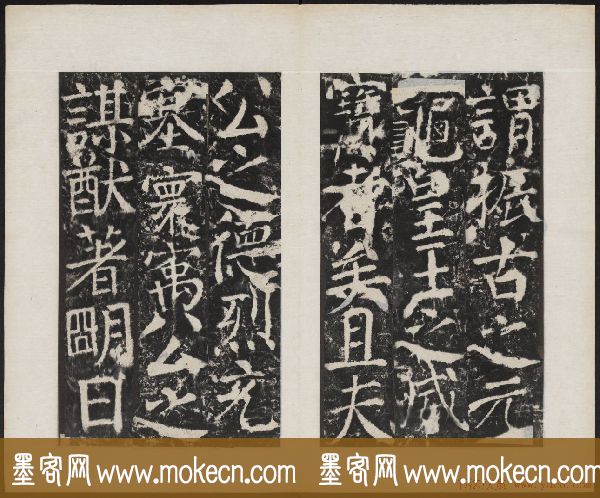 謂振古之元
龜皇王之威
寶者矣且夫
公之德烈充
塞寰寓公之
謀猷著明日
墨客网 www.mokecn.com 墨客网 www.mokecn.com